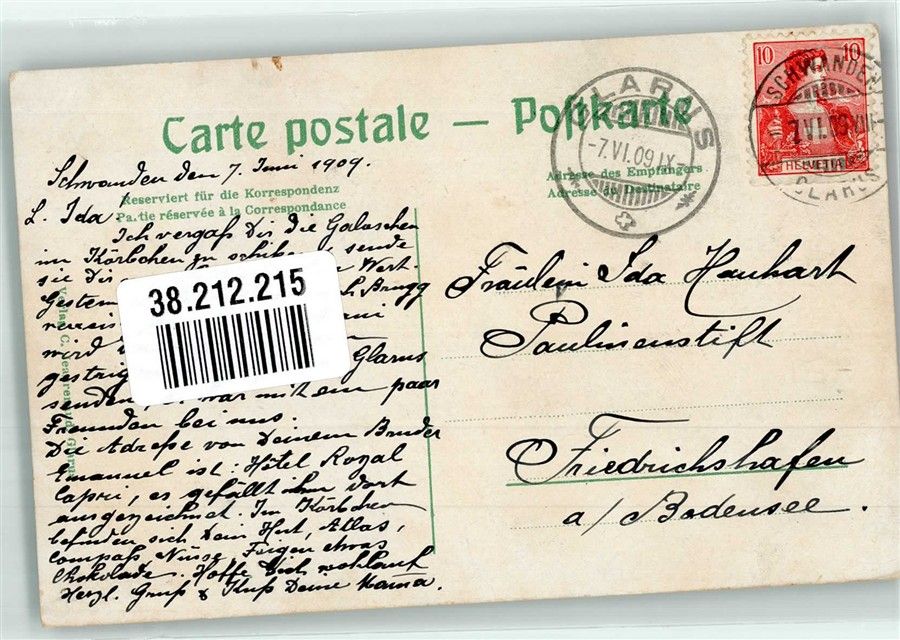 Carte postale — Postkarte
Reserviert für die Korrespondenz
Partie réservée à la Correspondance
Adresse des Empfängers
Adresse du Destinataire
10 10
HELVETIA
SCHWANDEN
7.VI.09.VII
GLARUS
GLARUS
-7.VI.09.IX-
Schwanden den 7. Juni 1909.
L. Ida.
Ich vergaß Dir die Galoschen
im Körbchen zu schicken, sende
sie Dir Wert.
Gestern Brugg
wird Glarus
gestrig
senden, war mit ein paar
Freunden bei uns.
Die Adreße von Deinem Bruder
Emanuel ist: Hôtel Royal
Capri, es gefällt ihm dort
ausgezeichnet. Im Körbchen
befinden sich Dein Hut, Atlas,
Compaß Nüsse, Feigen etwas
Chokolade. Hoffe Dich wohlauf
Herzl. Gruß & Kuß Deine Mama.
38.212.215
Fräulein Ida Hanhart
Paulinenstift
Friedrichshafen
a/Bodensee.